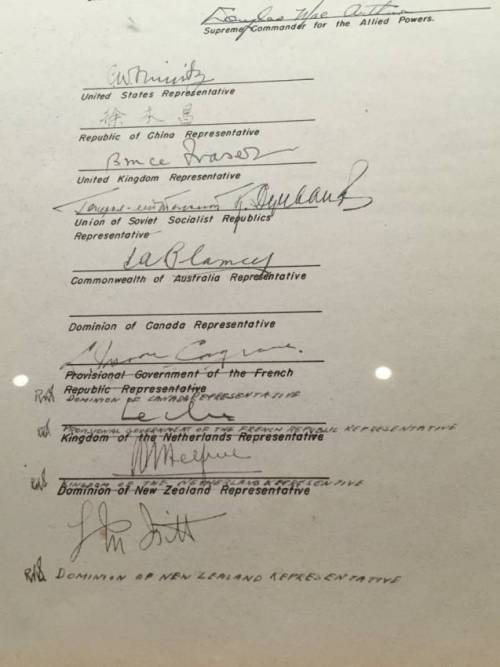 Douglas MacArthur
Supreme Commander for the Allied Powers.
C.W. Nimitz
United States Representative
徐永昌
Republic of China Representative
Bruce Fraser
United Kingdom Representative
Union of Soviet Socialist Republics
Representative
T.A. Blamey
Commonwealth of Australia Representative
Dominion of Canada Representative
L. Moore Cosgrave.
Provisional Government of the French
Republic Representative
RKS DOMINION OF CANADA REPRESENTATIVE
Leclerc
RKS PROVISIONAL GOVERNMENT OF THE FRENCH REPUBLIC REPRESENTATIVE
Kingdom of the Netherlands Representative
Helfrich
RKS KINGDOM OF THE NETHERLANDS REPRESENTATIVE
Dominion of New Zealand Representative
L M Isitt
RKS DOMINION OF NEW ZEALAND REPRESENTATIVE